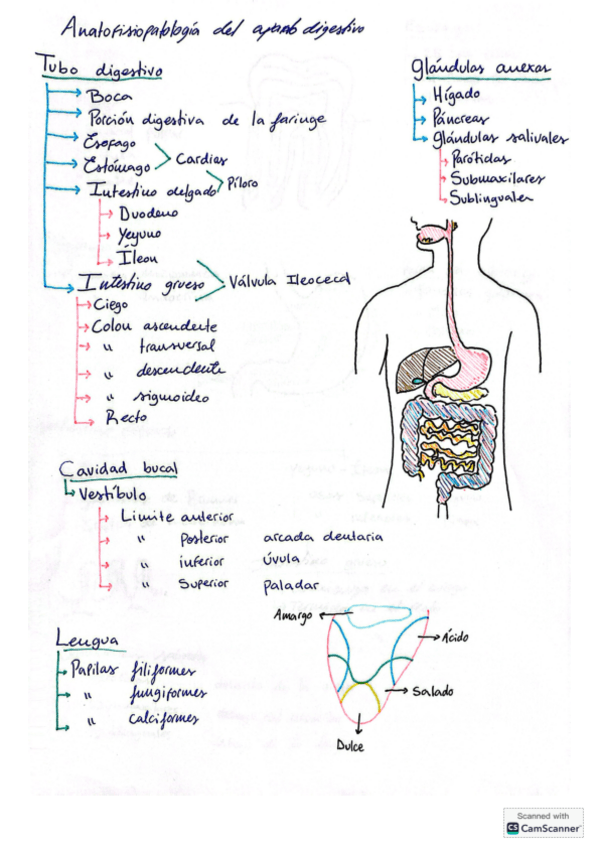 Anatofisiopatología del aparato digestivo
Tubo digestivo
Boca
Porción digestiva de la faringe
Esófago
Estómago
Cardias
Intestino delgado
Píloro
Duodeno
Yeyuno
Íleon
Intestino grueso
Válvula Ileocecal
Ciego
Colon ascendente
" transversal
" descendente
" sigmoideo
Recto
Glándulas anexas
Hígado
Páncreas
Glándulas salivales
Parótidas
Submaxilares
Sublinguales
Cavidad bucal
Vestíbulo
Limite anterior
" Posterior arcada dentaria
" inferior úvula
" Superior paladar
Lengua
Papilas filiformes
" fungiformes
" calciformes
Amargo
Ácido
Salado
Dulce
Scanned with
CS CamScanner